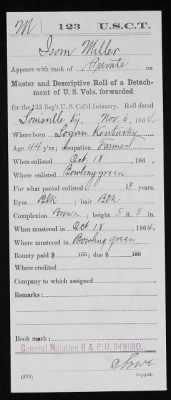 M | 123 | U.S.C.T.
Isom Miller
Appears with rank of Private on
Muster and Descriptive Roll of a Detach-
ment of U. S. Vols. forwarded
for the 123 Reg't U. S. Col'd Infantry. Roll dated
Louisville Ky. Nov. 6, 1864.
Where born Logan Kentucky
Age 44 y'rs; occupation Farmer
When enlisted Oct 18, 186 .
Where enlisted Bowling green
For what period enlisted 3 years.
Eyes Blk ; hair Blk
Complexion Brown ; height 5 ft. 8 in.
When mustered in Oct 18, 1864.
Where mustered in Bowling green
Bounty paid $ 100; due $ 100
Where credited
Company to which assigned
Remarks:
Book mark:
General Notation R & P O. 349690.
(339) Copyist.